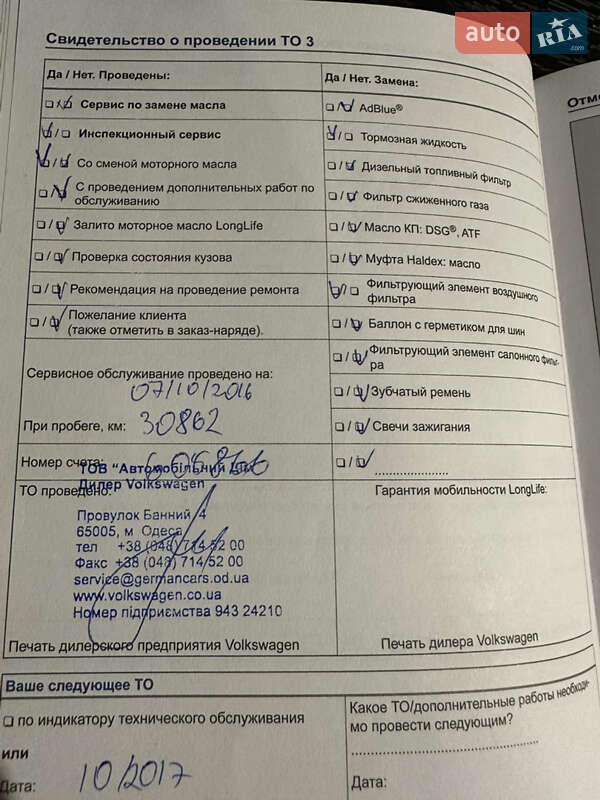 auto RIA .com
Свидетельство о проведении ТО 3
Отмо
Да / Нет. Проведены:
☐ / ☑ Сервис по замене масла
☑ / ☐ Инспекционный сервис
☑ / ☑ Со сменой моторного масла
☐ / ☑ С проведением дополнительных работ по
обслуживанию
☐ / ☑ Залито моторное масло LongLife
☐ / ☑ Проверка состояния кузова
☐ / ☑ Рекомендация на проведение ремонта
☐ / ☑ Пожелание клиента
(также отметить в заказ-наряде).
Да / Нет. Замена:
☐ / ☑ AdBlue®
☑ / ☐ Тормозная жидкость
☐ / ☑ Дизельный топливный фильтр
☐ / ☑ Фильтр сжиженного газа
☐ / ☑ Масло КП: DSG®, ATF
☐ / ☑ Муфта Haldex: масло
☑ / ☐ Фильтрующий элемент воздушного
фильтра
☐ / ☑ Баллон с герметиком для шин
☐ / ☑ Фильтрующий элемент салонного фильт-
ра
☐ / ☑ Зубчатый ремень
☐ / ☑ Свечи зажигания
☐ / ☑ ....................
Сервисное обслуживание проведено на:
07/10/2016
При пробеге, км: 30862
Номер счета:
ТОВ "Автомобільний Дім"
Дилер Volkswagen
ТО проведено:
Провулок Банний, 4
65005, м Одеса
тел +38 (048) 714 52 00
Факс +38 (048) 714 52 00
service@germancars.od.ua
www.volkswagen.co.ua
Номер підприємства 943 24210
Печать дилерского предприятия Volkswagen
Гарантия мобильности LongLife:
Печать дилера Volkswagen
Ваше следующее ТО
☐ по индикатору технического обслуживания
или
Дата: 10/2017
Какое ТО/дополнительные работы необходи-
мо провести следующим?
........................................
Дата: